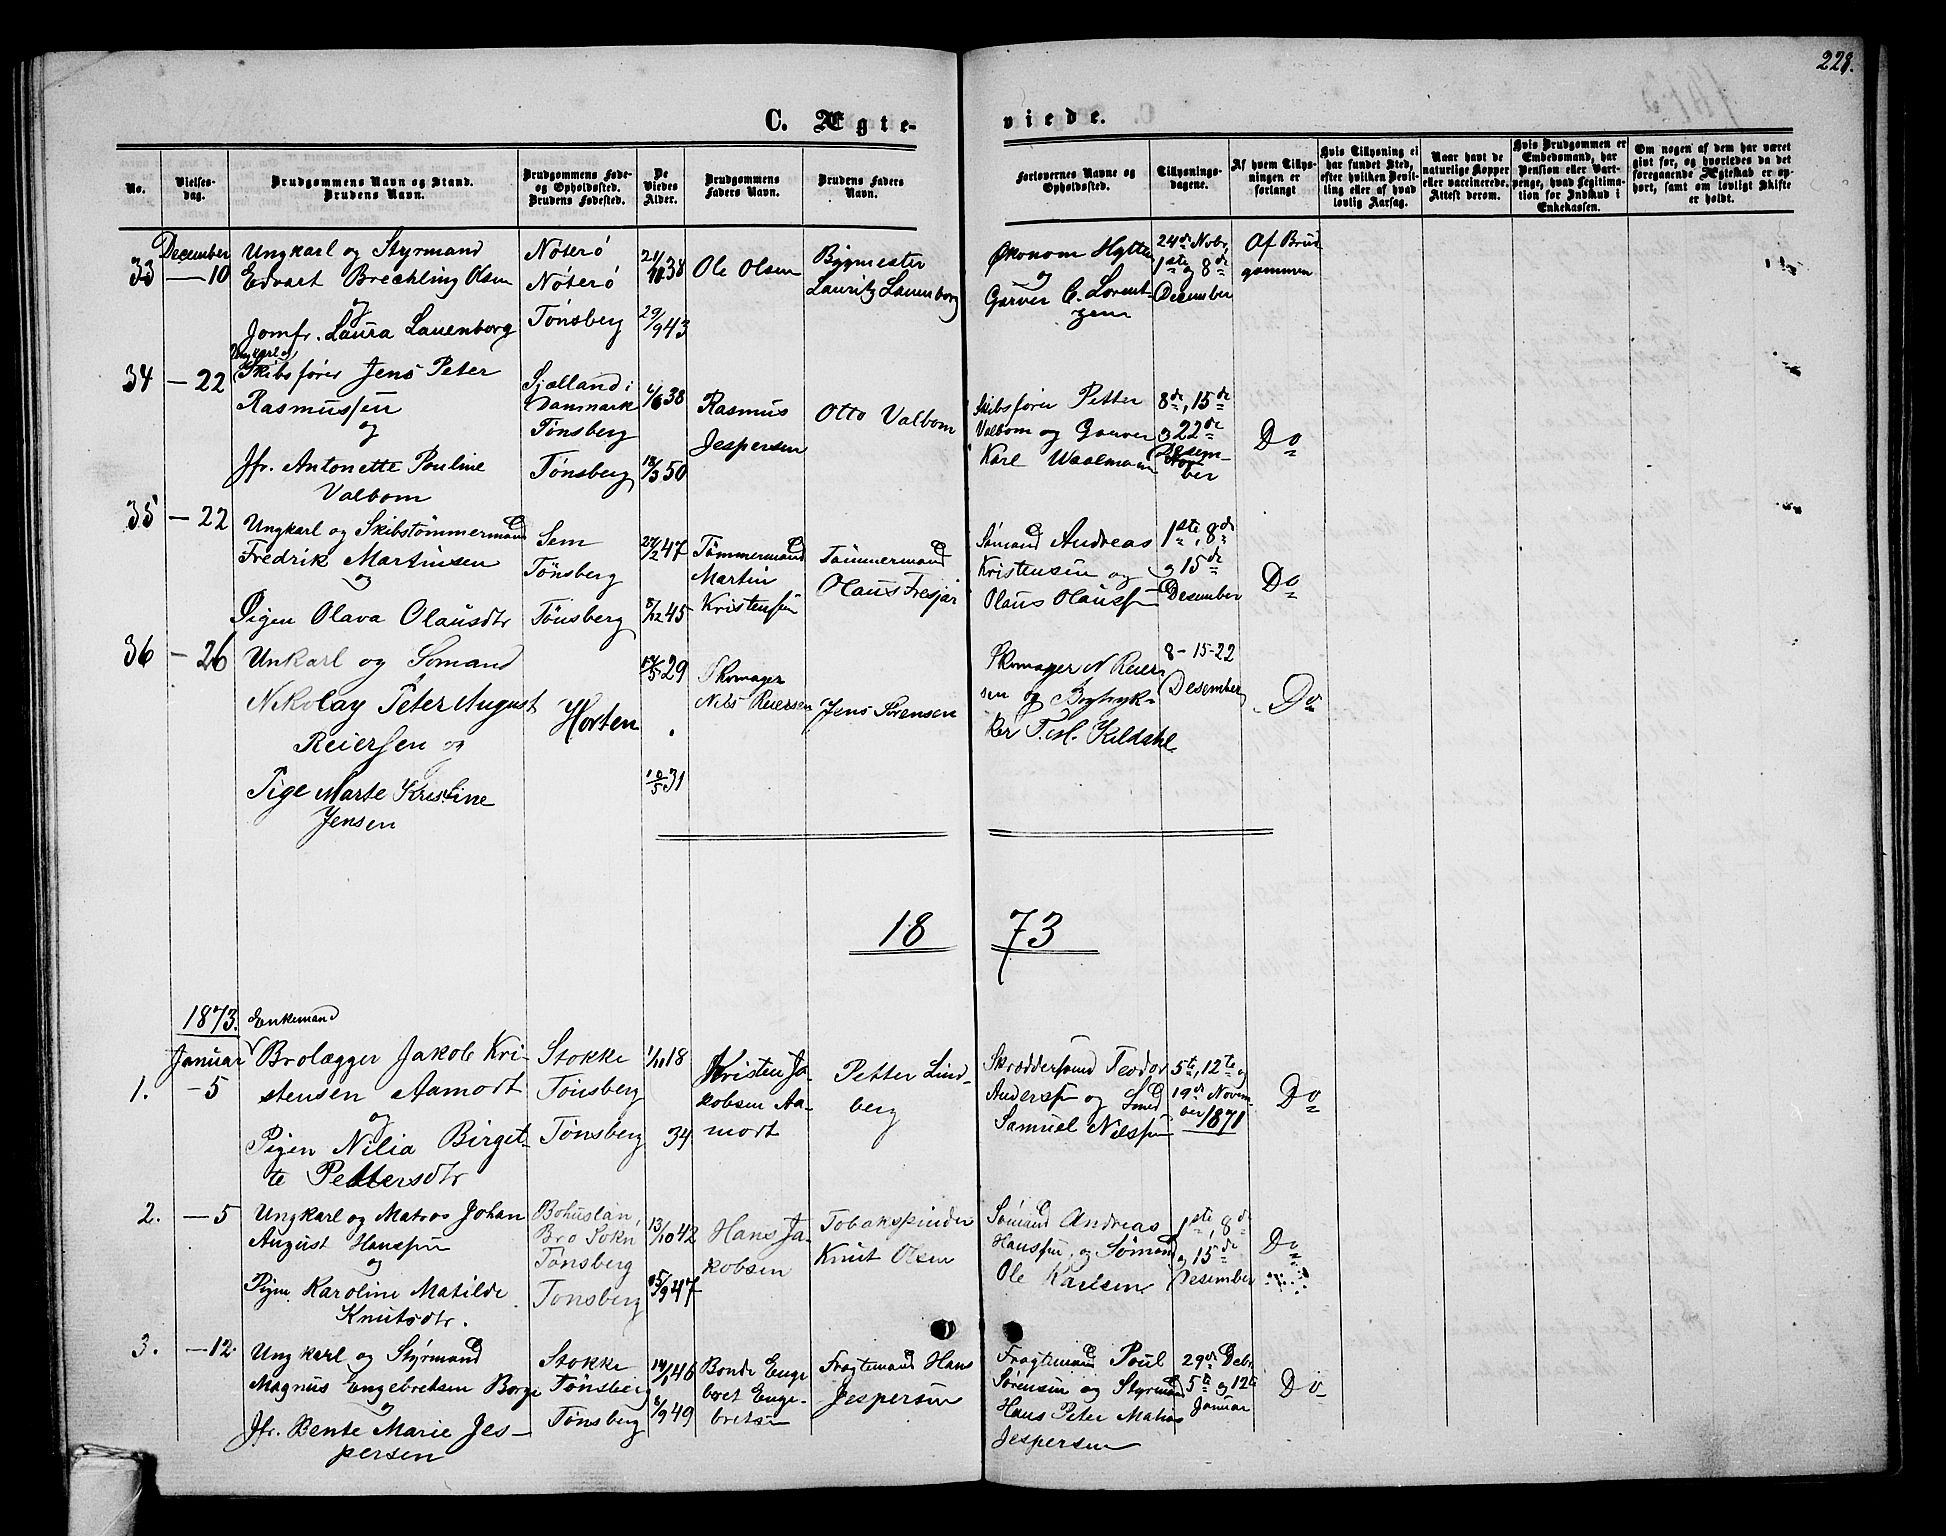 228.
C. Ægte-
viede.
No.
Vielses-
dag.
Brudgommens Navn og Stand.
Brudens Navn.
Brudgommens Føde-
og Opholdssted.
Brudens Fødested.
De
Viedes
Alder.
Brudgommens
Faders Navn.
Brudens Faders
Navn.
Forlovernes Navne og
Opholdssted.
Tillysnings-
dagene.
Af hvem Tillys-
ningen er
forlangt.
Hvis Tillysning ei
har fundet Sted,
efter hvilken Bevil-
ling eller af hvad
lovlig Aarsag.
Naar havt de
naturlige Kopper
eller vaccinerede.
Attest derom.
Hvis Brudgommen er
Embedsmand, har
Pension eller Vart-
penge, hvad Legitima-
tion for Indskud i
Enkekassen.
Om nogen af dem har været
gift før, og hvorledes da det
foregaaende Ægteskab er op-
hørt, samt om lovligt Skifte
er holdt.
33
December
— 10
Ungkarl og Styrmand
Edvart Brechling Olsen
og
Jomfr. Laura Lauenborg
Nøterø
Nøterø
Tønsberg
38
29/9 43
Ole Olsen
Bygmester
Lauritz Lauenborg
Økonom Hytten
og
Garver C. Lorent-
zen
24de Nobr,
1ste og 8de
December
Af Brud
gommen
34
— 22
Ungkarl og
Skibsfører Jens Peter
Rasmussen
og
Jfr. Antonette Pouline
Valbom
Sjælland i
Danmark
Tønsberg
Tønsberg
38
50
Rasmus
Jespersen
Otto Valbom
Skibsfører Petter
Valbom og Garver
Karl Waalmann
8de, 15de
og 22de
Desem-
ber
Do
35
— 22
Ungkarl og Skibstømmermand
Fredrik Martinsen
og
Pigen Olava Olausdtr
Sem
Tønsberg
Tønsberg
47
8/12 45
Tømmermand
Martin
Kristensen
Tømmermand
Olaus Fresjar
Sømand Andreas
Kristensen og
Olaus Olaussen
1ste, 8de
og 15de
Desember
Do
36
— 26
Unkarl og Sømand
Nikolay Peter August
Reiersen og
Pige Marte Kristine
Jensen
Horten
29
31
Skomager
Nils Reiersen
Jens Sørensen
Skomager N Reier
sen og Bogtryk-
ker T. Kildahl
8 - 15 - 22
Desember
Do
18 73
1873.
Januar
1.
— 5
Enkemand
Brolægger Jakob Kri-
stensen Aamort
og
Pigen Nilia Birget-
te Pettersdtr
Stokke
Tønsberg
Tønsberg
1/11 18
34
Kristen Ja-
kobsen Aa-
mort
Petter Lind-
berg
Skræddersvend Teodor
Andersen og Smed
Samuel Nilsen
5te, 12te og
19de Novem-
ber 1871
Do
2.
— 5
Ungkarl og Matros Johan
August Hanssen
og
Pigen Karoline Matilde
Knutsdtr.
Bohuslän,
Bro Sokn
Tønsberg
Tønsberg
13/10 42
47
Hans Ja-
kobsen
Tobakspinder
Knut Olsen
Sømand Andreas
Hanssen, og Sømand
Ole Karlsen
1ste, 8de
og 15de
Desember
Do
3.
— 12
Ungkarl og Styrmand
Magnus Engebretsen Borge
og
Jfr. Bente Marie Jes-
persen
Stokke
Tønsberg
Tønsberg
46
49
Bonde Enge
bret Enge-
bretsen
Fragtemand Hans
Jespersen
Fragtemand Poul
Sørensen og Styrmand
Hans Peter Matias
Jespersen
29de Debr
5te og 12te
Januar
Do